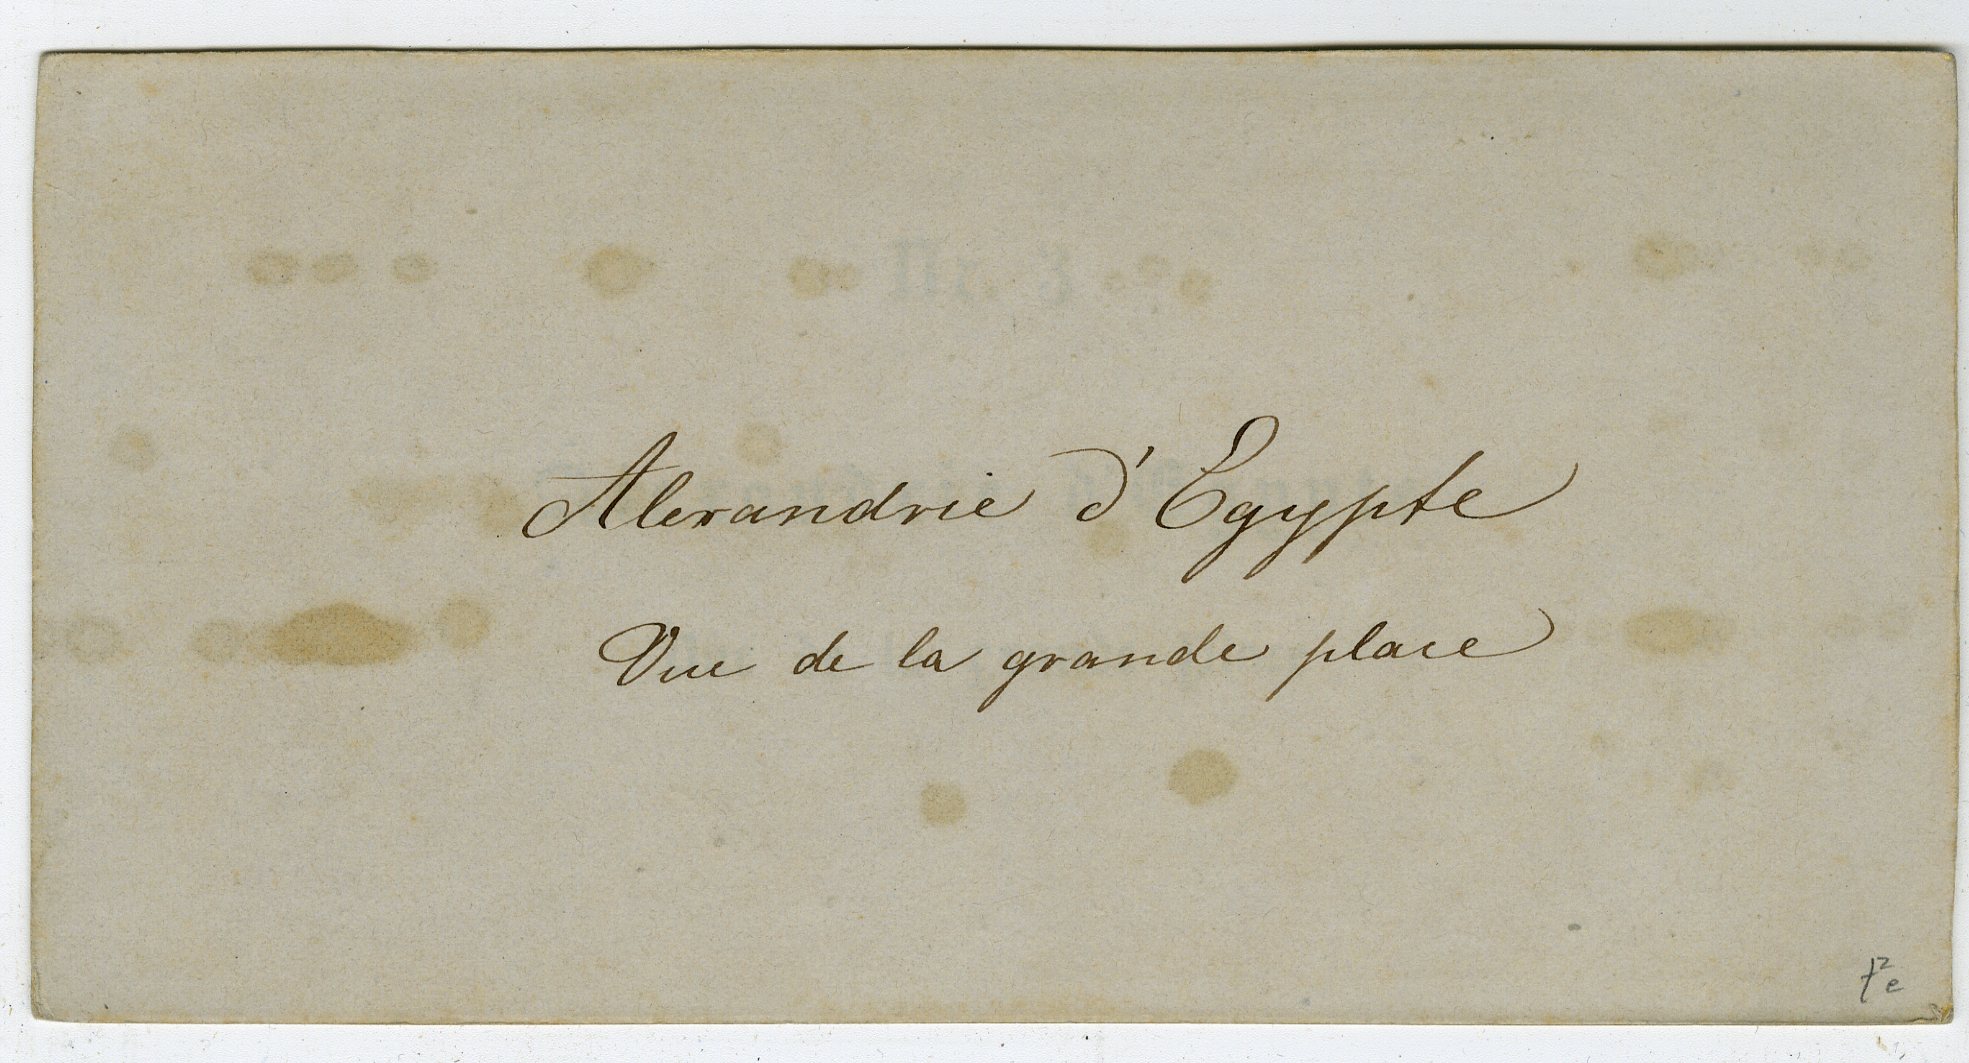 Nr. 3
Alexandrie d'Egypte
Vue de la grande place